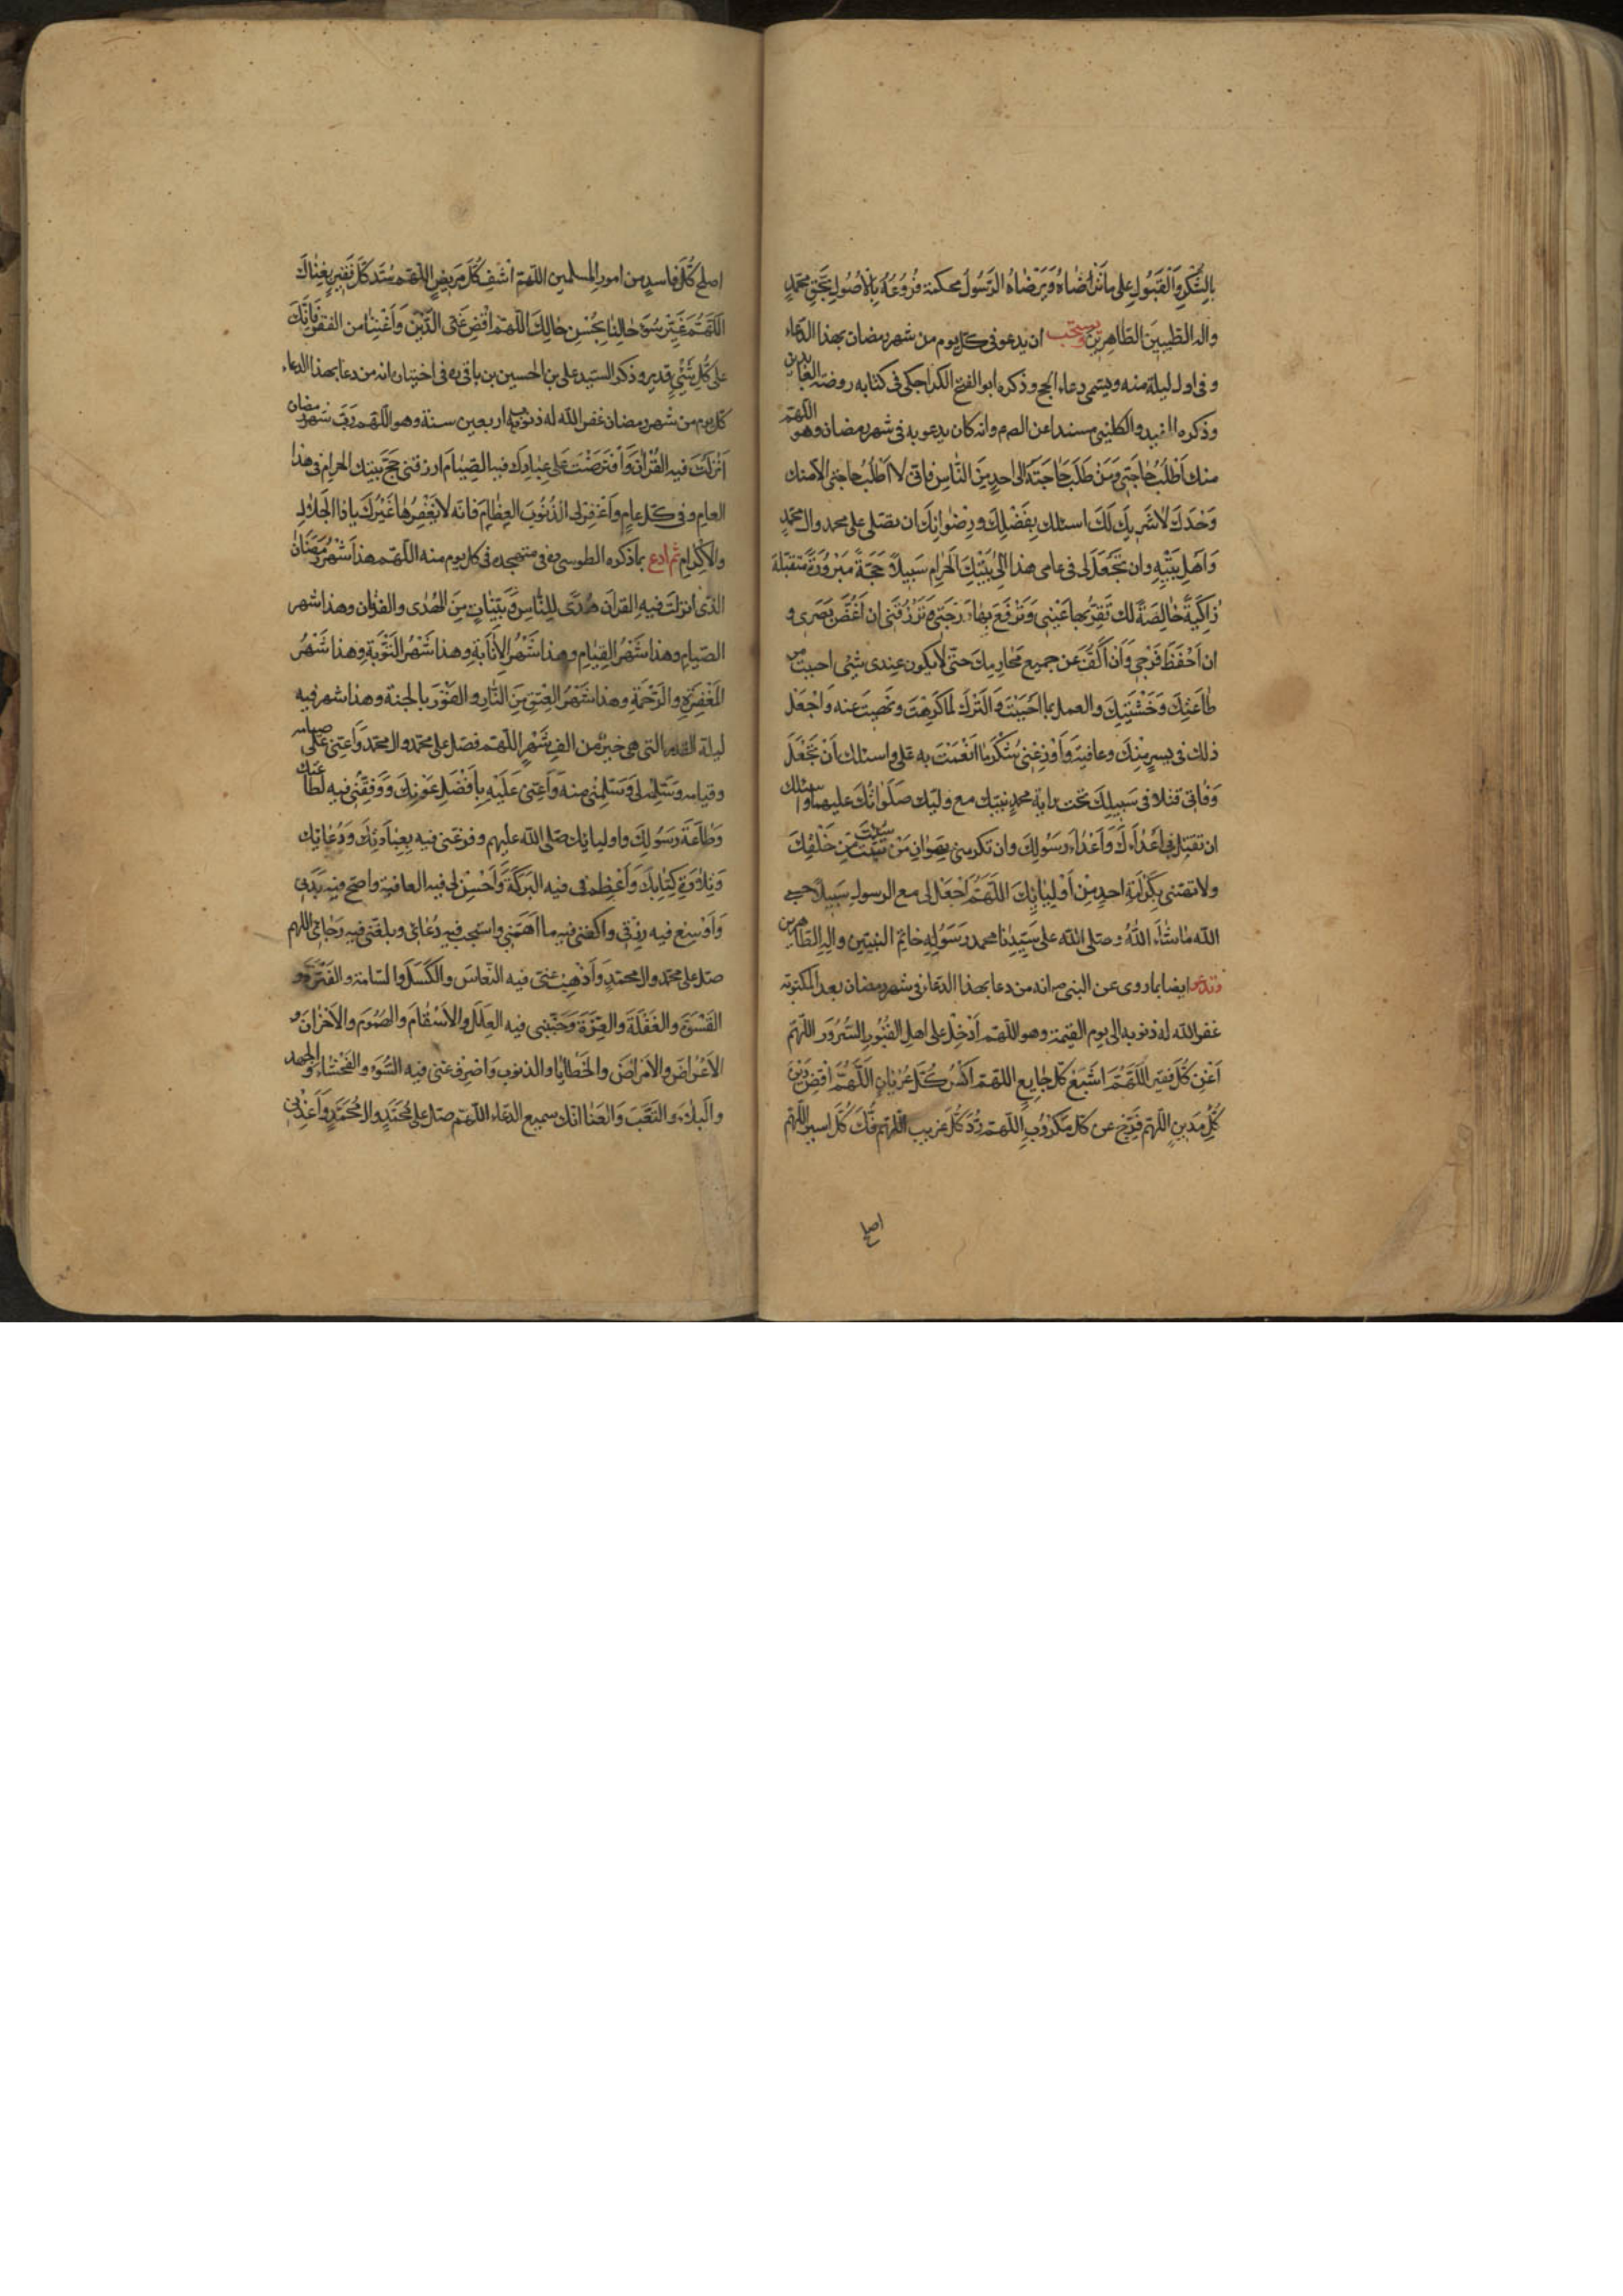 بِالشُّكْرِ وَالْقَبُولِ عَلى ما تَرْضاهُ وَيَرْضاهُ الرَّسُولُ محكمة فُرُوعُهُ بِالْاُصُولِ بِحَقِّ محمّدٍ
واله الطّيبينَ الطّاهِرينَ ويستحب ان يدعو فى كل يوم من شهر رمضان بهذا الدّعاء
و فى اول ليلة منه ويسمى دعاء الحج وذكره ابو الفتح الكراجكى فى كتابه روضة العابدين
وذكره المفيد والكلينى مسندا عن الص م وانه كان يدعو به فى شهر رمضان وهو اللّهمّ
منك اَطْلُبُ حاجَتى وَمَنْ طَلَبَ حاجَتَهُ الى احدٍ مِنَ النّاسِ فانى لا اَطْلُبُ حاجتى الا منك
وَحْدَكَ لا شَريكَ لَكَ اسئلك بِفَضْلِكَ و رِضْوانِكَ ان تصّلى على محمد وال محمّدٍ
وَاَهْلِ بَيْتِهِ وان تَجْعَلَ لى فى عامى هذا اِلى بَيْتِكَ الحَرامِ سَبيلاً حَجَّةً مَبْرُورَةً متقبّلة
زاكِيَةً خالِصَةً لك تَقَرُّ بها عَيْنى وَتَرْفَعُ بِها دَرَجَتى وَتَرْزُقَنى ان اَغُضَّ بَصَرى و
ان اَحْفَظَ فَرْجى وَاَنْ اَكُفَّ عَن جميع مَحارِمِكَ حتّى لا يكون عِندى شئى احب من
طاعَتِكَ وَخَشْيَتِكَ والعمل بما اَحْبَبْتَ وَالتَرْكِ لما كَرِهْتَ ونَهيتَ عنه وَاجْعَلْ
ذلك فى يسرٍ مِنْكَ وعافيةٍ وَاَوْزِعْنى شُكْرَ ما اَنْعَمْتَ به عَلىَّ واسئلك اَنْ تَجْعَلَ
وَفاتى قتلا فى سَبيلِكَ تحت راية محمدٍ نبيّك مع وليّك صَلَواتُكَ عليهما واسئلك
ان تقتل بى اَعْداءَكَ وَاَعْداءَ رَسُولِكَ وان تكرمنى بهوان مَنْ شِئْتَ مِنْ خَلْقِكَ
ولا تهنّى بِكَرامَةِ احدٍ مِنْ اَوْلِيائِكَ اللّهُمَّ اجْعَلْ لى مع الرسولِ سَبيلاً حسبى
الله ما شاءَ اللهُ وصلى اللّه على سَيِّدِنا محمد رَسُولِهِ خاتم النبيّين والِهِ الطّاهرين
وتدعو ايضا بما روى عن النبى ص انه من دعا بهذا الدّعاء فى شهر رمضان بعد المكتوبة
غفر اللّه له ذنوبه الى يوم القيمة وهو اللّهمّ اَدْخِلْ على اهلِ القُبُورِ السُّرُورَ اللّهمّ
اَغْنِ كُلَّ فَقيرٍ اللّهُمَّ اشْبِعْ كُلَّ جايِعٍ اللّهمّ اكْسُ كُلَّ عُرْيانٍ اللّهُمَّ اقْضِ دَيْنَ
كُلِّ مَدينٍ اللّهمّ فَرِّجْ عن كلّ مَكْرُوبٍ اللّهمّ رُدَّ كُلَّ غَريبٍ اللّهمّ فُكَّ كُلَّ اسيرٍ اللّهمّ
اصلح
اصلح كُلَّ فاسدٍ من امورِ المسلمين اللّهمّ اشْفِ كُلَّ مَريضٍ اللّهمّ سُدَّ كُلَّ فَقْرٍ بِغِناكَ
اللّهُمَّ غَيِّرْ سُوءَ حالِنا بِحُسْنِ حالِكَ اللّهمّ اقْضِ عَنّى الدَّيْنَ وَاَغْنِنا من الفقر فَاِنَّكَ
على كُلِّ شَئٍ قديرٍ وذكر السيّد على بن الحسين بن باقى ره فى اختياره انه من دعا بهذا الدعاء
كل يوم من شهر رمضان غفر اللّه له ذنوب اربعين سنة وهو اللّهمّ رَبَّ شهر رمضان
اَنْزَلْتَ فيه القُرْانَ وَافْتَرَضْتَ عَلى عِبادِكَ فيه الصّيامَ ارزقنى حَجَّ بَيتِكَ الحرامِ فى هذا
العام وفى كلّ عامٍ وَاغْفِرْ لى الذُّنُوبَ العِظامَ فانّه لا يَغْفِرُها غَيْرُكَ يا ذا الجَلالِ
والاكرام ثم ادع بما ذكره الطوسى ره فى متهجده فى كل يوم منه اللّهمّ هذا شَهْرُ رَمَضان
الّذى انزلتَ فيه القرانَ هُدًى للِنّاسِ وَبَيِّناتٍ مِنَ الهُدى والفرقان وهذا شهر
الصّيامِ وهذا شَهْرُ القِيامِ وهذا شَهْرُ الاِنابَةِ وهذا شَهْرُ التَّوْبَةِ وهذا شَهْرُ
المَغْفِرَةِ والرَّحْمَةِ وهذا شَهْرُ العِتْقِ مِنَ النّارِ والفَوْزِ بالجنة وهذا شهر فيه
ليلة القدر التى هى خيرٌ من الفِ شَهْرٍ اللّهمّ فصَلّ على محمّد وال محمّد وَاَعِنّى على صيامه
وقيامه وَسَلِّمْهُ لى وَسَلِّمْنى منه وَاَعِنّى عَلَيْهِ بِاَفْضَلِ عَوْنِكَ وَوَفِّقْنى فيه لطاعتك
وَطاعَةِ رَسُولِكَ واوليائك صلّى اللّه عليهم وفرغنى فيه بِعِبادَتِكَ وَدُعائِكَ
وَتِلاوَةِ كِتابِكَ وَاَعْظِمْ لى فيه البَرَكَةَ وَاَحْسِنْ لى فيه العافية واصح فيه بَدَنى
وَاَوْسِعْ فيه رِزْقى واكفنى فيه ما اَهَمَّنى واستجب فيه دُعائى وبلغنى فيه رَجائى اللّهم
صلّ على محمّد وال محمّدٍ وَاَذْهِبْ عنّى فيه النّعاسَ والكَسَلَ والسّامة والفَتْرَةَ و
القَسْوَةَ والغَفْلَةَ والغِرَّةَ وَجَنِّبْنى فيه العِلَلَ والاَسْقامَ والهُمُومَ والاَحْزانَ و
الاَعْراضَ والاَمْراضَ والخَطايا والذنوب وَاصْرِفْ عنّى فيه السُّوءَ والفَحْشاءَ والجهد
والَبلاءَ والتَّعَبَ وَالعَنا انّك سميع الدّعاء اللّهمّ صلّ على مُحَمَّدٍ وال مُحَمَّدٍ وَاَعِذْنى